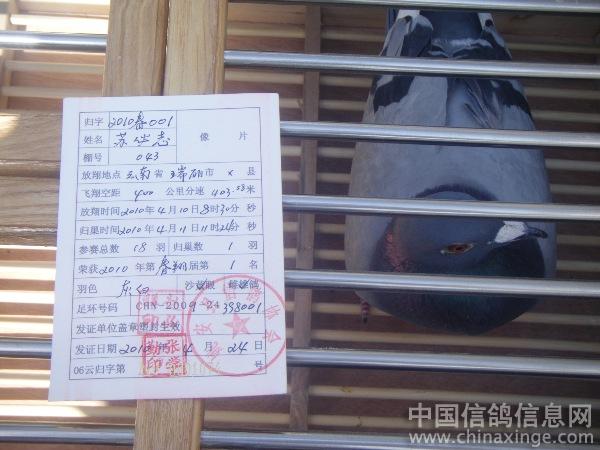 归字 2010春001
姓名 苏 志 像 片
棚号 043
放翔地点 云南 省 瑞丽 市 × 县
飞翔空距 400 公里分速 403.58 米
放翔时间 2010 年 4 月 10 日 8 时 30 分 秒
归巢时间 2010 年 4 月 11 日 11 时 24 分 秒
参赛总数 18 羽 归巢数 1 羽
荣获 2010 年第 春翔 届第 1 名
羽色 灰白 沙
足环号码 CHN-2009-24 398001
发证单位盖章塑封生效
发证日期 2010 年 4 月 24 日
06云归字第 号
中国信鸽信息网
www.chinaxinge.com